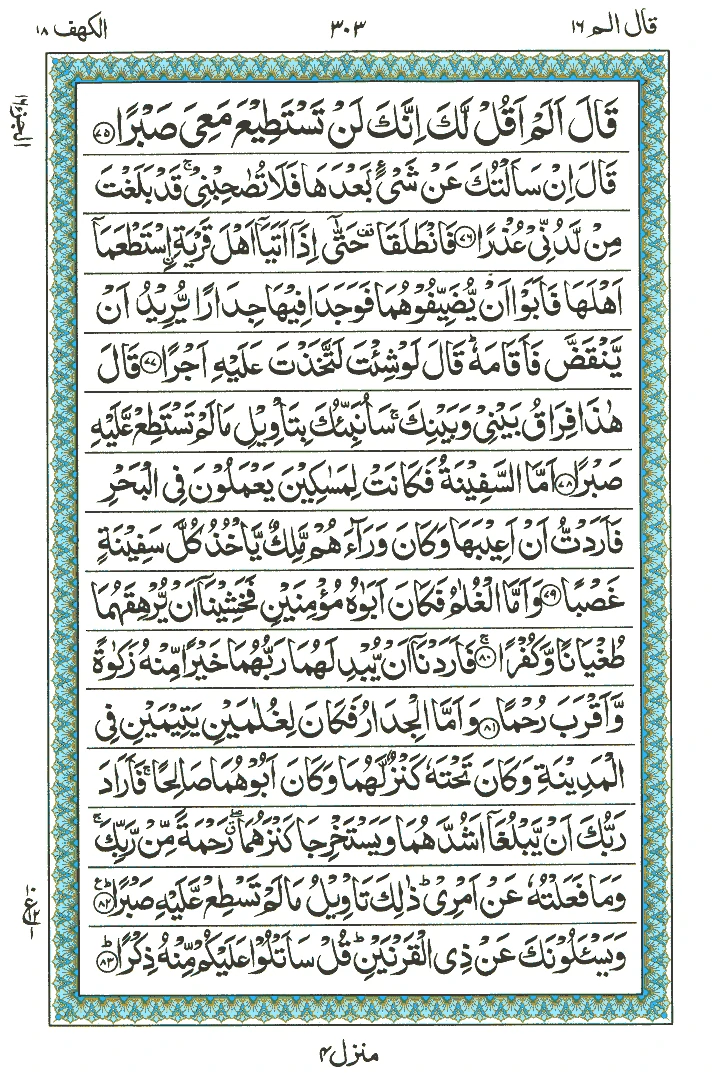 قال الم ١٦
٣٠٣
الكهف ١٨
الجزء ١٦
قَالَ اَلَمْ اَقُلْ لَّكَ اِنَّكَ لَنْ تَسْتَطِيْعَ مَعِيَ صَبْرًا ﴿٧٥﴾
قَالَ اِنْ سَاَلْتُكَ عَنْ شَیْءٍۭ بَعْدَهَا فَلَا تُصٰحِبْنِیْ ۚ قَدْ بَلَغْتَ
مِنْ لَّدُنِّیْ عُذْرًا ﴿٧٦﴾ فَانْطَلَقَا ۥ حَتّٰۤی اِذَاۤ اَتَیَاۤ اَهْلَ قَرْیَةِ ِۨاسْتَطْعَمَاۤ
اَهْلَهَا فَاَبَوْا اَنْ یُّضَیِّفُوْهُمَا فَوَجَدَا فِیْهَا جِدَارًا یُّرِیْدُ اَنْ
یَّنْقَضَّ فَاَقَامَهٗ ؕ قَالَ لَوْ شِئْتَ لَتَّخَذْتَ عَلَیْهِ اَجْرًا ﴿٧٧﴾ قَالَ
هٰذَا فِرَاقُ بَیْنِیْ وَبَیْنِكَ ۚ سَاُنَبِّئُكَ بِتَاْوِیْلِ مَا لَمْ تَسْتَطِعْ عَّلَیْهِ
صَبْرًا ﴿٧٨﴾ اَمَّا السَّفِیْنَةُ فَكَانَتْ لِمَسٰكِیْنَ یَعْمَلُوْنَ فِی الْبَحْرِ
فَاَرَدْتُّ اَنْ اَعِیْبَهَا وَكَانَ وَرَآءَهُمْ مَّلِكٌ یَّاْخُذُ كُلَّ سَفِیْنَةٍ
غَصْبًا ﴿٧٩﴾ وَاَمَّا الْغُلٰمُ فَكَانَ اَبَوٰهُ مُؤْمِنَیْنِ فَخَشِیْنَاۤ اَنْ یُّرْهِقَهُمَا
طُغْیَانًا وَّكُفْرًا ۚ ﴿٨٠﴾ فَاَرَدْنَاۤ اَنْ یُّبْدِلَهُمَا رَبُّهُمَا خَیْرًا مِّنْهُ زَكٰوةً
وَّاَقْرَبَ رُحْمًا ﴿٨١﴾ وَاَمَّا الْجِدَارُ فَكَانَ لِغُلٰمَیْنِ یَتِیْمَیْنِ فِی
الْمَدِیْنَةِ وَكَانَ تَحْتَهٗ كَنْزٌ لَّهُمَا وَكَانَ اَبُوْهُمَا صَالِحًا ۚ فَاَرَادَ
رَبُّكَ اَنْ یَّبْلُغَاۤ اَشُدَّهُمَا وَیَسْتَخْرِجَا كَنْزَهُمَا ۖ رَحْمَةً مِّنْ رَّبِّكَ ۚ
وَمَا فَعَلْتُهٗ عَنْ اَمْرِیْ ؕ ذٰلِكَ تَاْوِیْلُ مَا لَمْ تَسْطِعْ عَّلَیْهِ صَبْرًا ؕ ﴿٨٢﴾
وَیَسْـَٔلُوْنَكَ عَنْ ذِی الْقَرْنَیْنِ ؕ قُلْ سَاَتْلُوْا عَلَیْكُمْ مِّنْهُ ذِكْرًا ؕ ﴿٨٣﴾
منزل ۴